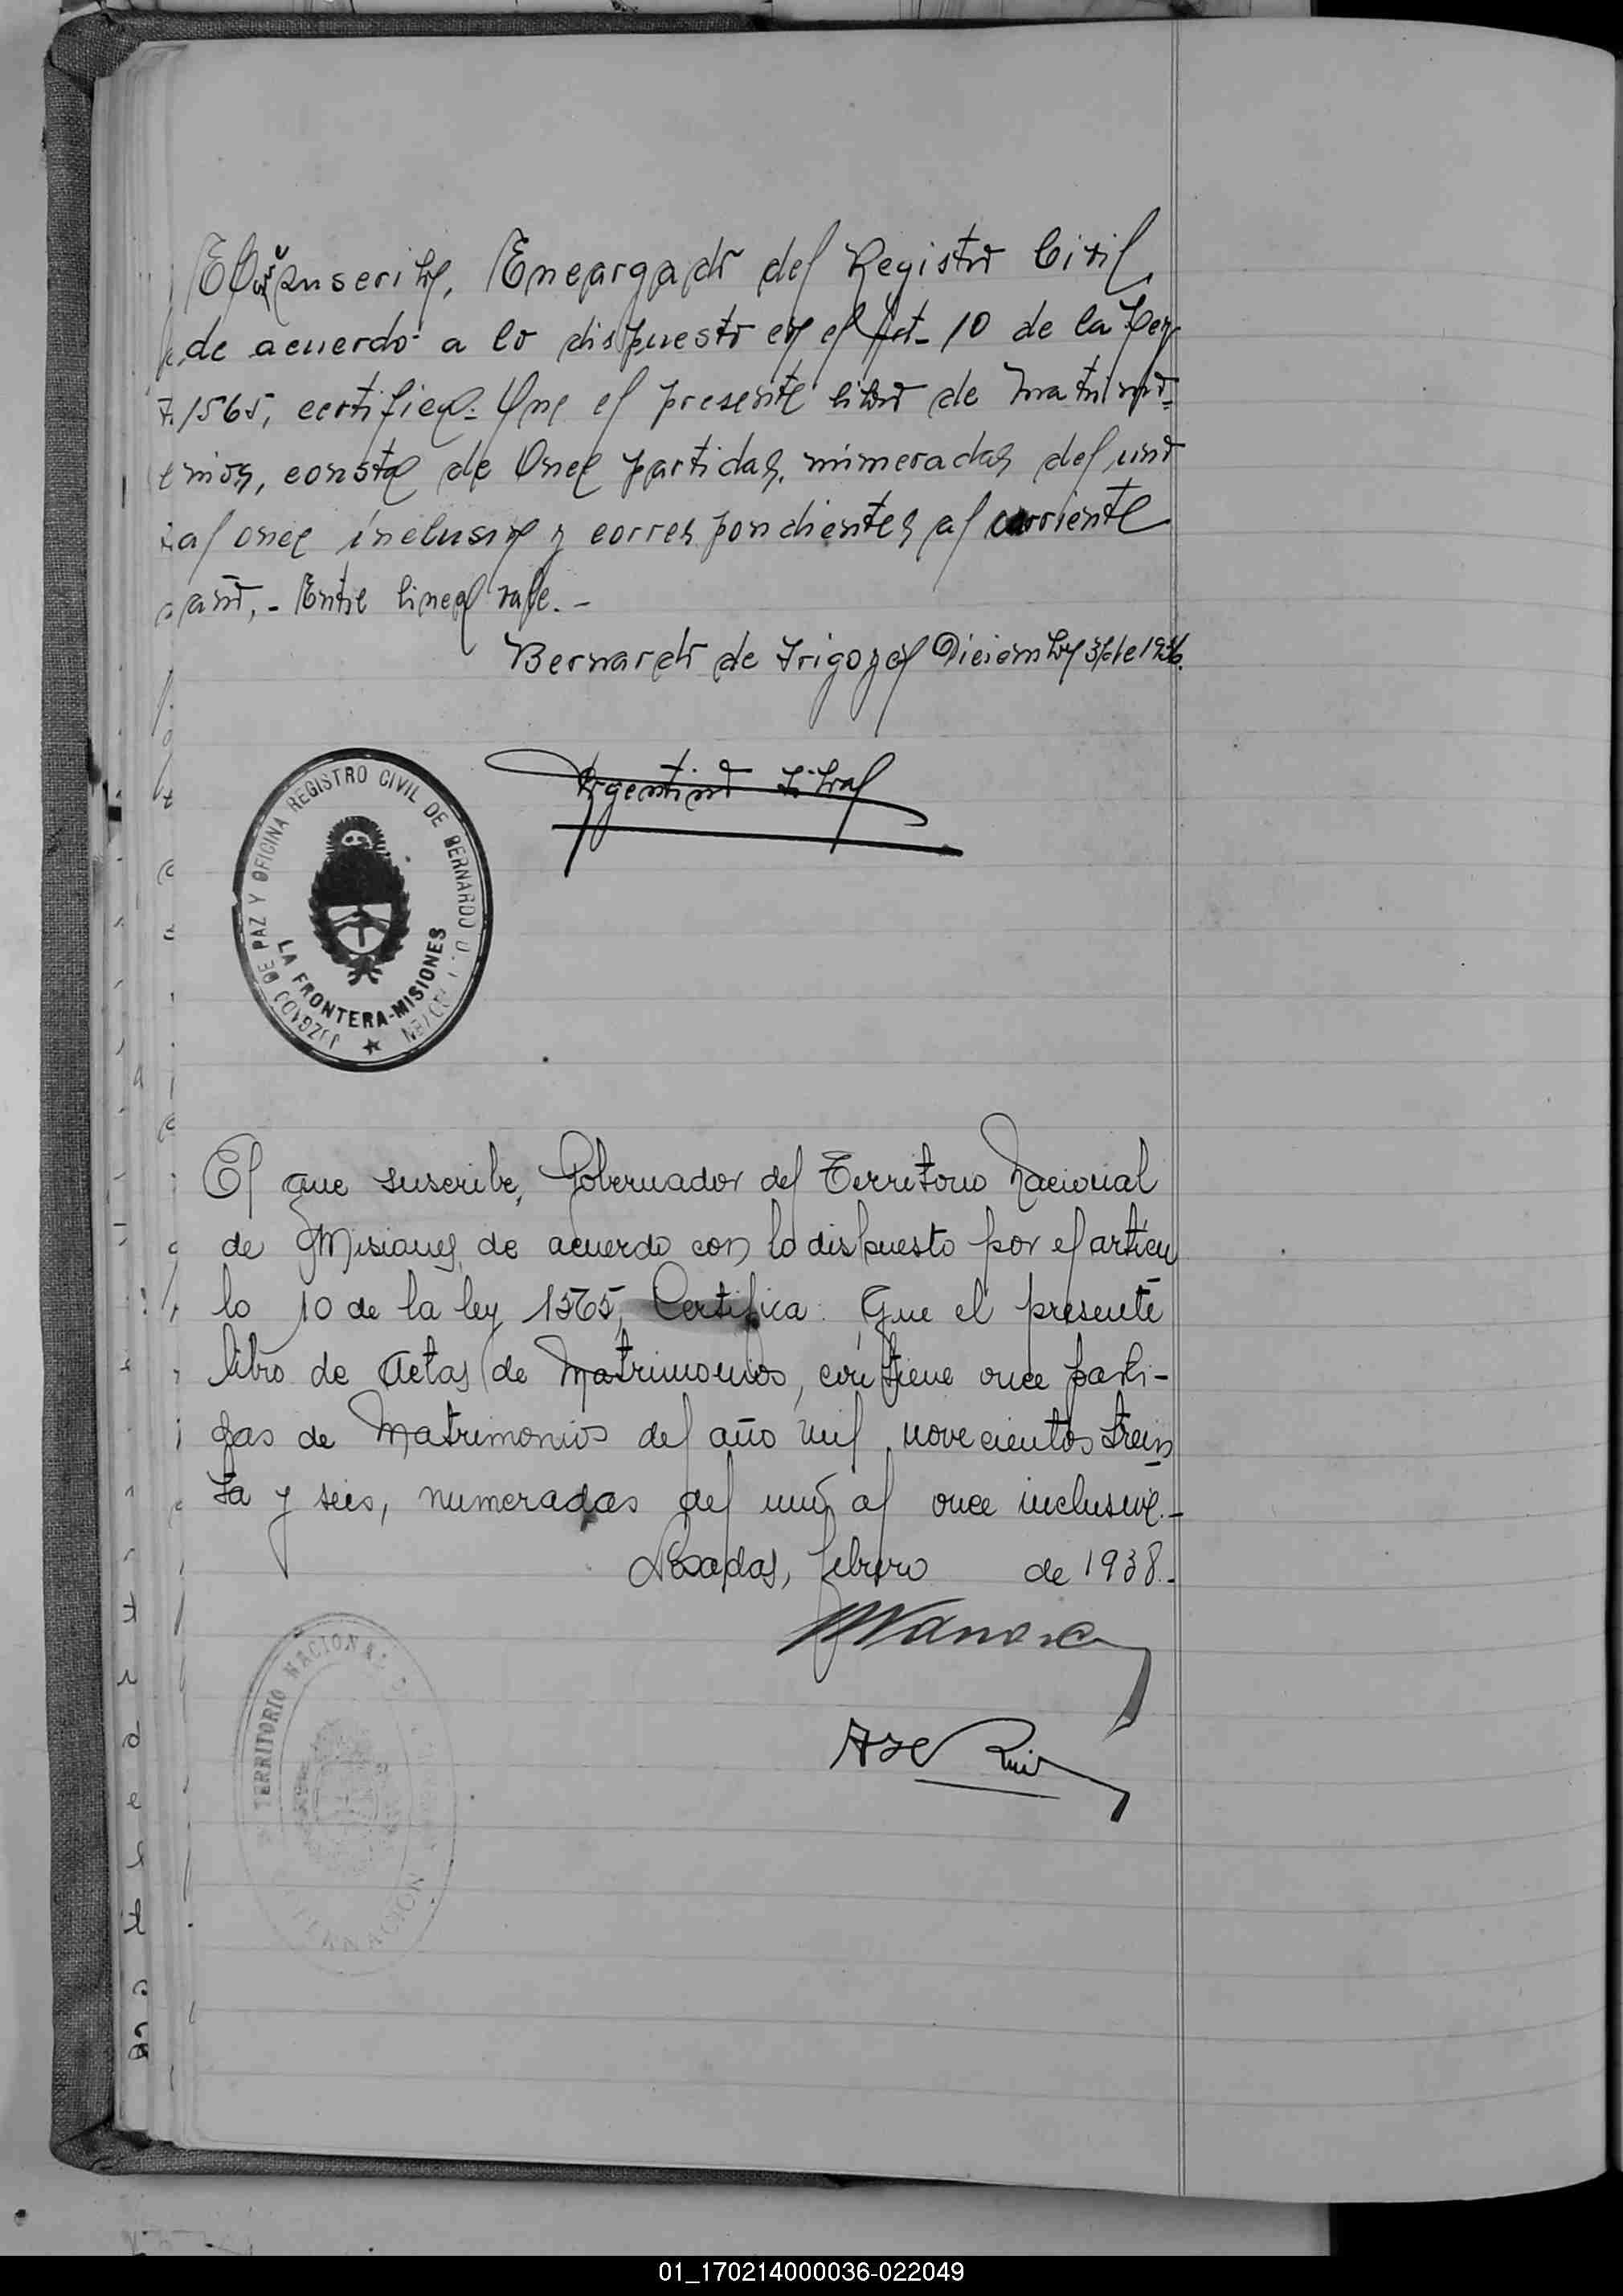 El que suscribe, Encargado del Registro Civil
de acuerdo a lo dispuesto en el Art. 10 de la Ley
1565, certifica: Que el presente libro de Matrimo-
nios, consta de Once partidas, numeradas del uno
al once inclusive y correspondientes al corriente
año.- Entre linea vale.-
Bernardo de Irigoyen Diciembre 31 de 1936.
Argentino
JUZGADO DE PAZ Y OFICINA REGISTRO CIVIL DE BERNARDO D. IRIGOYEN
LA FRONTERA-MISIONES
El que suscribe, Gobernador del Territorio Nacional
de Misiones, de acuerdo con lo dispuesto por el artícu
lo 10 de la ley 1565, Certifica: Que el presente
libro de Actas de Matrimonios, contiene once parti-
das de Matrimonios del año mil novecientos trein
ta y seis, numeradas del uno al once inclusive.-
Posadas, febrero de 1938.-
Ruiz
TERRITORIO NACIONAL
01_170214000036-022049